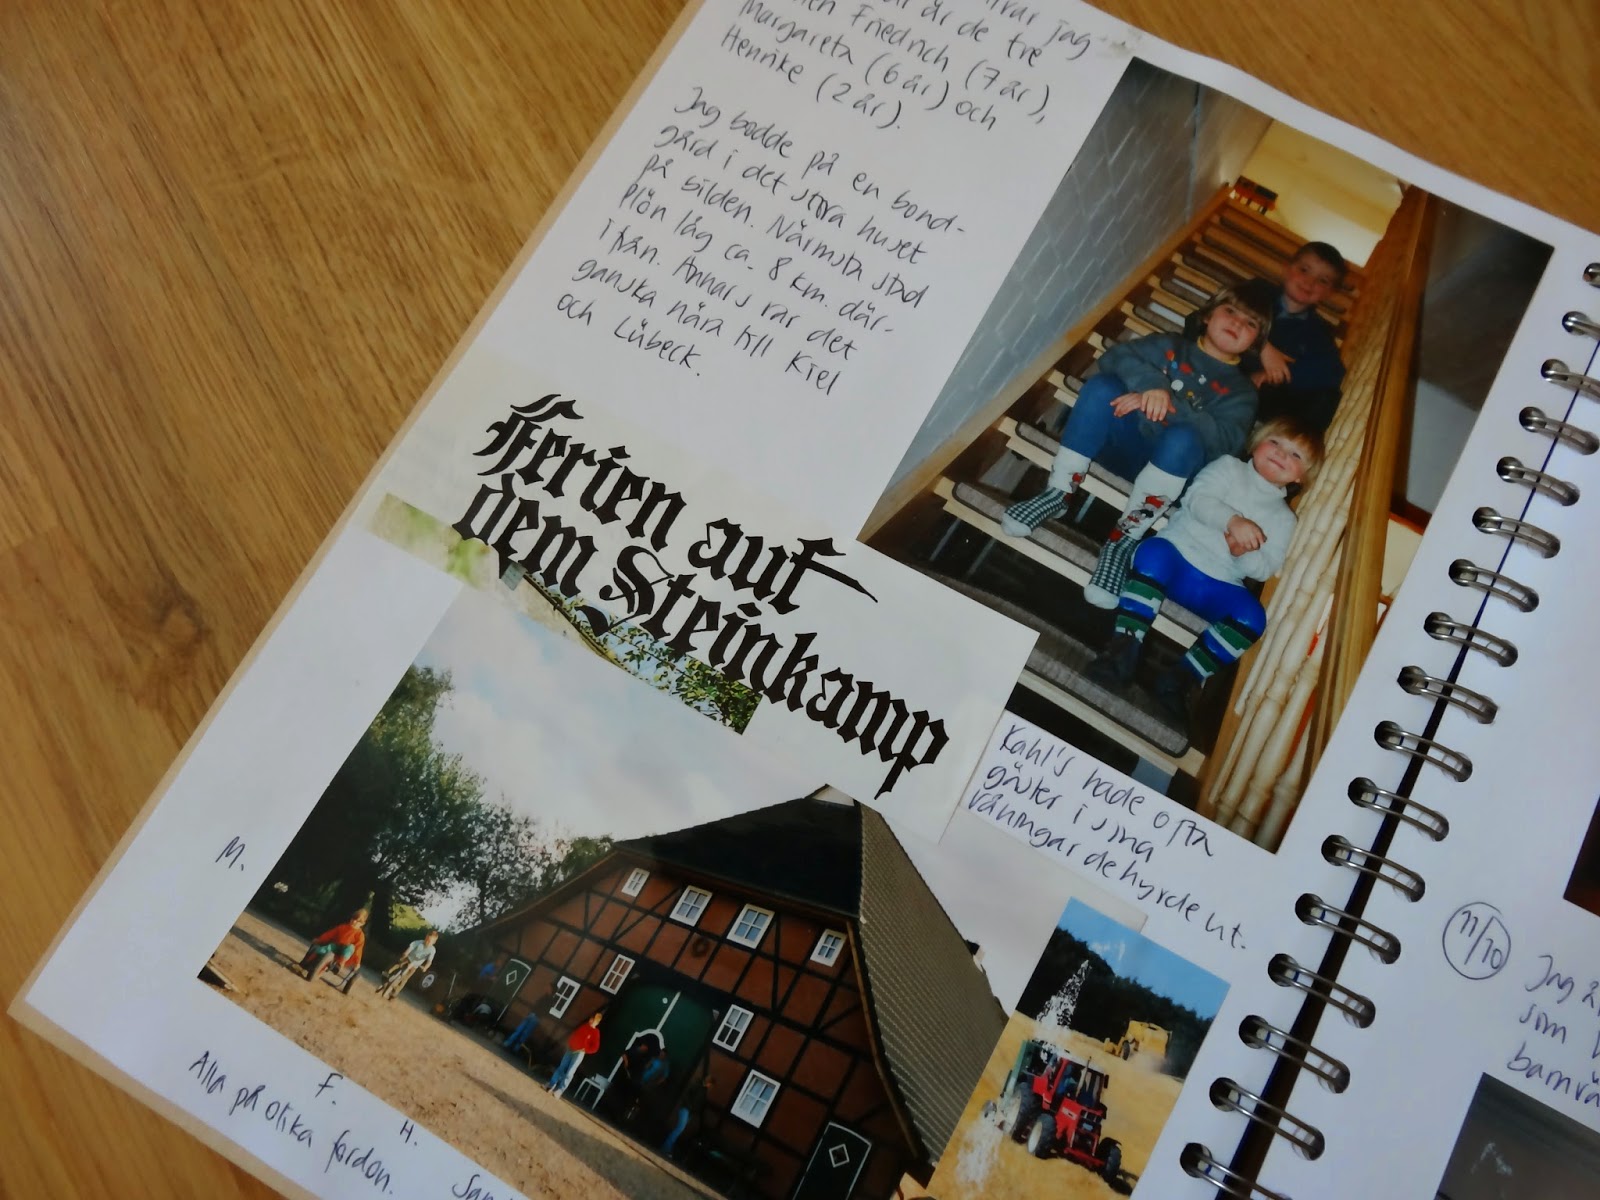 jag
är de tre
Friedrich (7 år),
Margareta (6 år) och
Henrike (2 år).
Jag bodde på en bond-
gård i det stora huset
på bilden. Närmsta stad
Plön låg ca. 8 km. där-
ifrån. Annars var det
ganska nära till Kiel
och Lübeck.
Ferien auf
dem Steinkamp
Kahl's hade ofta
gäster i sina
våningar de hyrde ut.
M.
F.
H.
Alla på olika fordon.
11/10
Jag
som